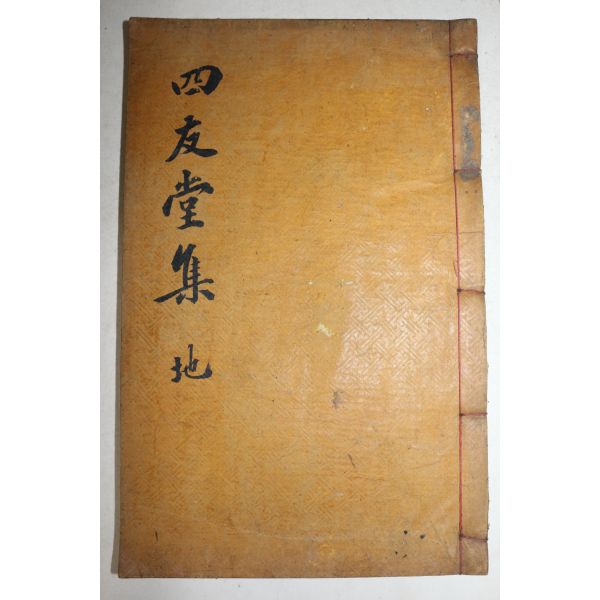 四友堂集 地